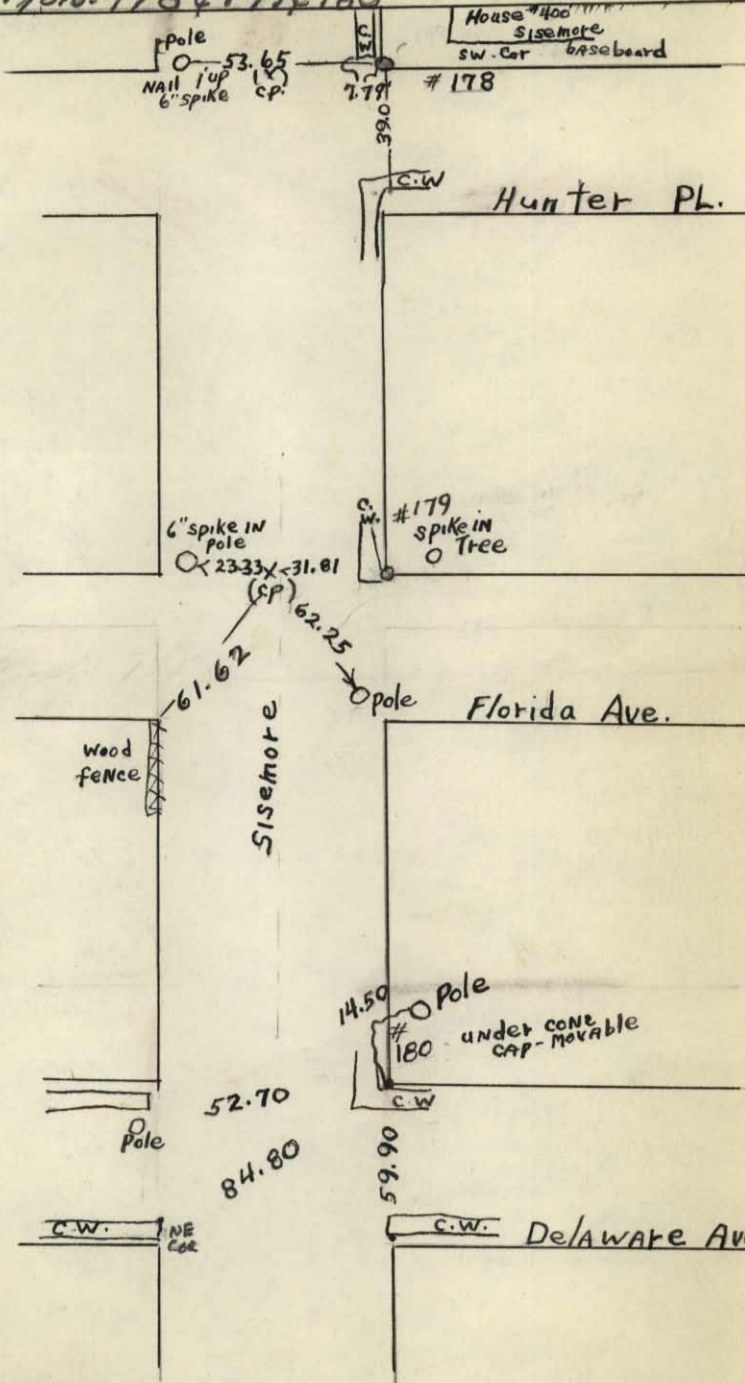 House #400
Sisemore
SW. Cor baseboard
Pole
53.65
NAIL 1' up
6" spike
C.P.
C.W.
7.79
#178
39.0
C.W
Hunter PL.
6" spike IN
Pole
23.33 X 31.81
(CP)
C.
W.
#179
spike in
Tree
62.25
61.62
Pole
Florida Ave.
Wood
feNce
Sisemore
14.50
Pole
#
180
under conc
CAP-MOVABLE
C.W
52.70
Pole
84.80
59.90
C.W.
NE
COR
C.W.
DelAwAre Av